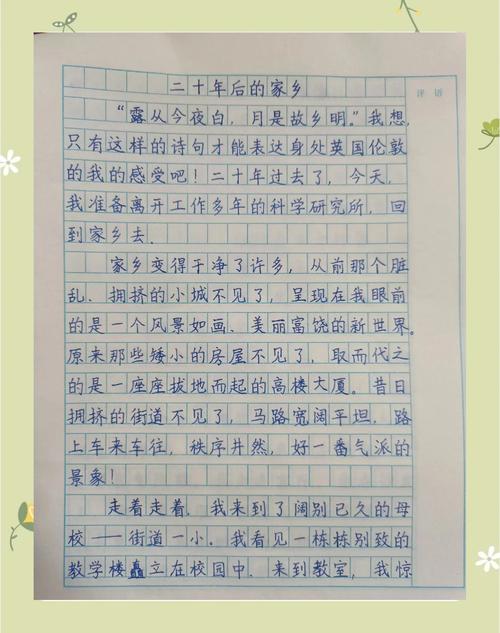 二十年后的家乡
评语
“露从今夜白，月是故乡明。”我想，
只有这样的诗句才能表达身处英国伦敦
的我的感受吧！二十年过去了，今天，
我准备离开工作多年的科学研究所，回
到家乡去．
家乡变得干净了许多，从前那个脏
乱、拥挤的小城不见了，呈现在我眼前
的是一个风景如画、美丽富饶的新世界。
原来那些矮小的房屋不见了，取而代之
的是一座座拔地而起的高楼大厦。昔日
拥挤的街道不见了，马路宽阔平坦，路
上车来车往，秩序井然，好一番气派的
景象！
走着走着，我来到了阔别已久的母
校——街道一小。我看见一栋栋别致的
教学楼矗立在校园中．来到教室，我惊